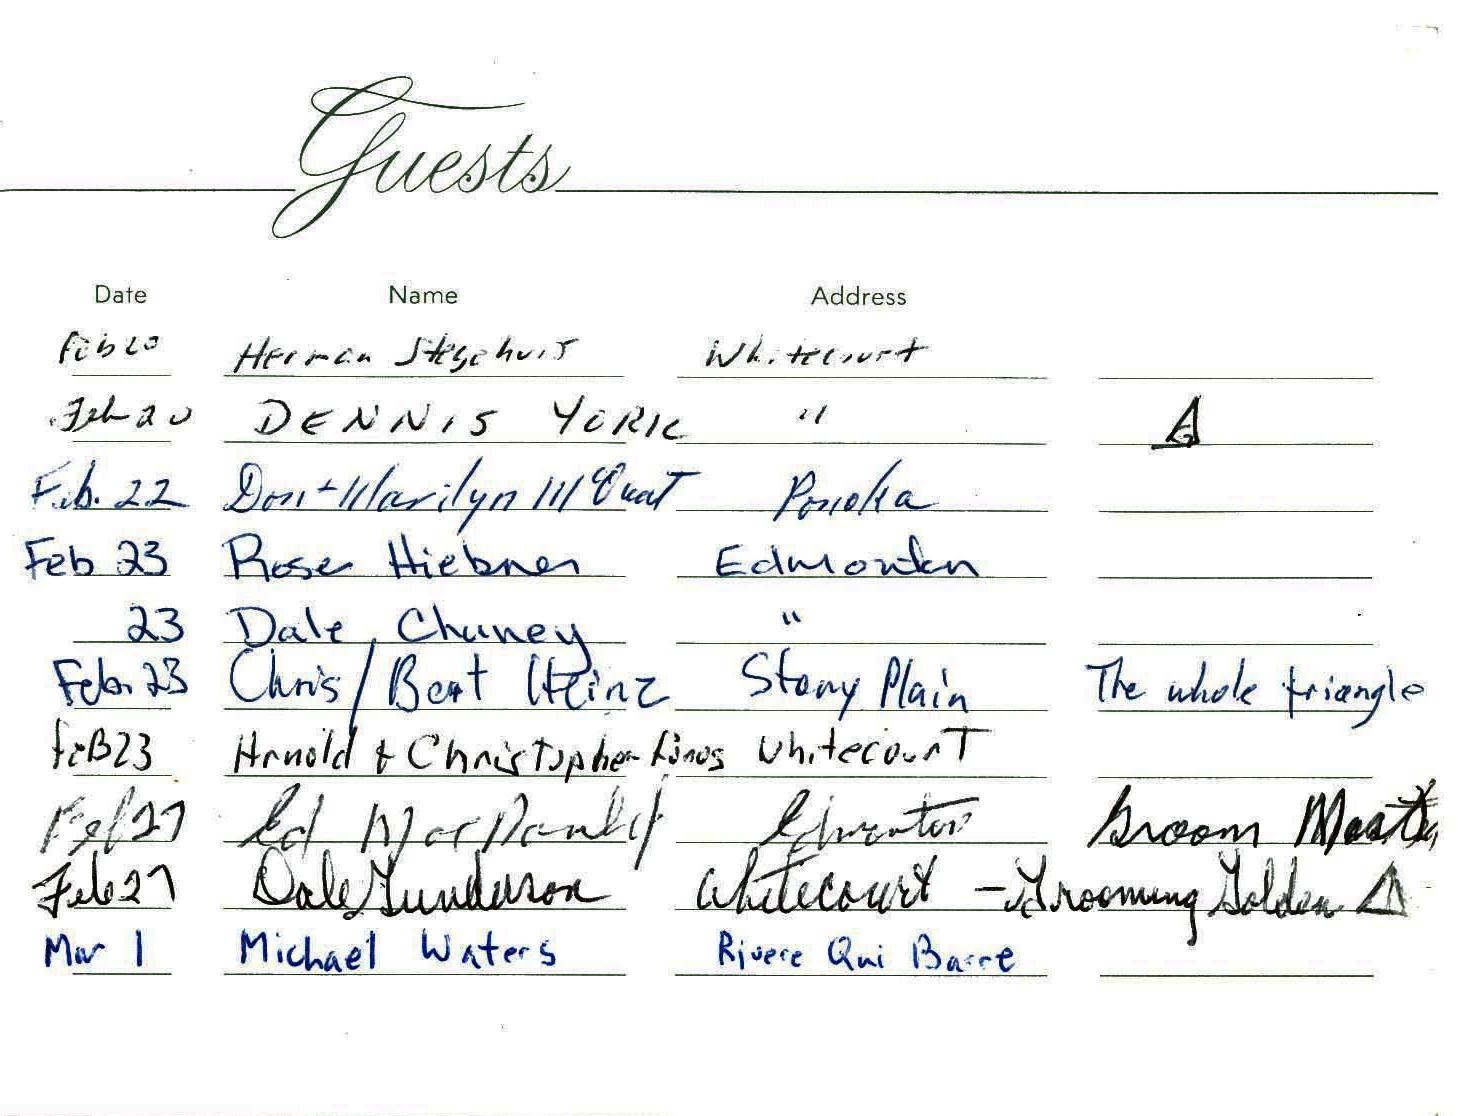 Guests
Date Name Address
Feb 20 Herman Stegehuis Whitecourt
Feb 20 DENNIS YORK "
Feb. 22 Don + Marilyn McQuat Ponoka
Feb 23 Hiebner Edmonton
23 Dale Chaney "
Feb. 23 Chris/Bert Heinz Stony Plain The whole triangle
FEB 23 Arnold & Christopher Whitecourt
Feb 27 Ed Edmonton Groom Master
Feb 27 Dale Gunderson Whitecourt - Grooming Golden
Mar 1 Michael Waters Rivere Qui Barre